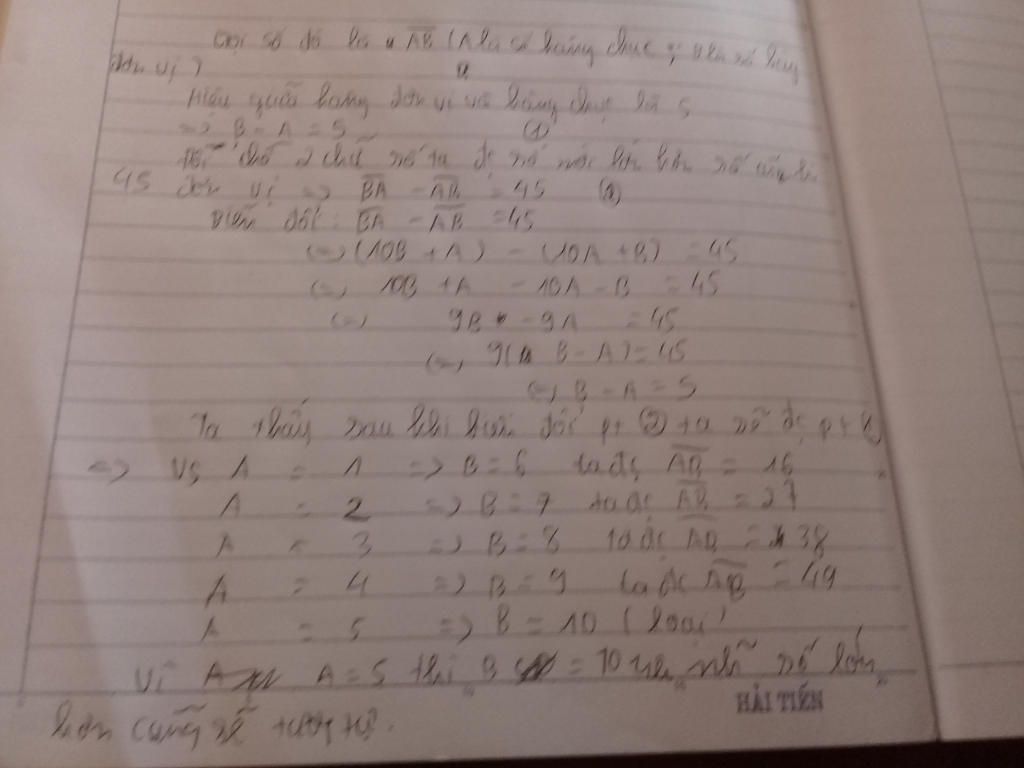 Gọi số đó là AB (A là số hàng chục; B là số hàng
đơn vị)
Hiệu giữa hàng đơn vị và hàng chục là 5
=> B - A = 5 (1)
Đổi chỗ 2 chữ số ta đc số mới lớn hơn số
45 đơn vị => BA - AB = 45 (2)
Biến đổi: BA - AB = 45
(=) (10B + A) - (10A + B) = 45
(=) 10B + A - 10A - B = 45
(=) 9B - 9A = 45
(=) 9( B - A) = 45
(=) B - A = 5
Ta thấy sau khi biến đổi pt (2) ta sẽ đc pt (1)
=> Vs A = 1 => B = 6 ta đc AB = 16
A = 2 => B = 7 ta đc AB = 27
A = 3 => B = 8 ta đc AB = 38
A = 4 => B = 9 ta đc AB = 49
A = 5 => B = 10 (loại)
Vì A = 5 thì B = 10 nên số lớn
hơn cũng sẽ tương tự.
HẢI TIẾN